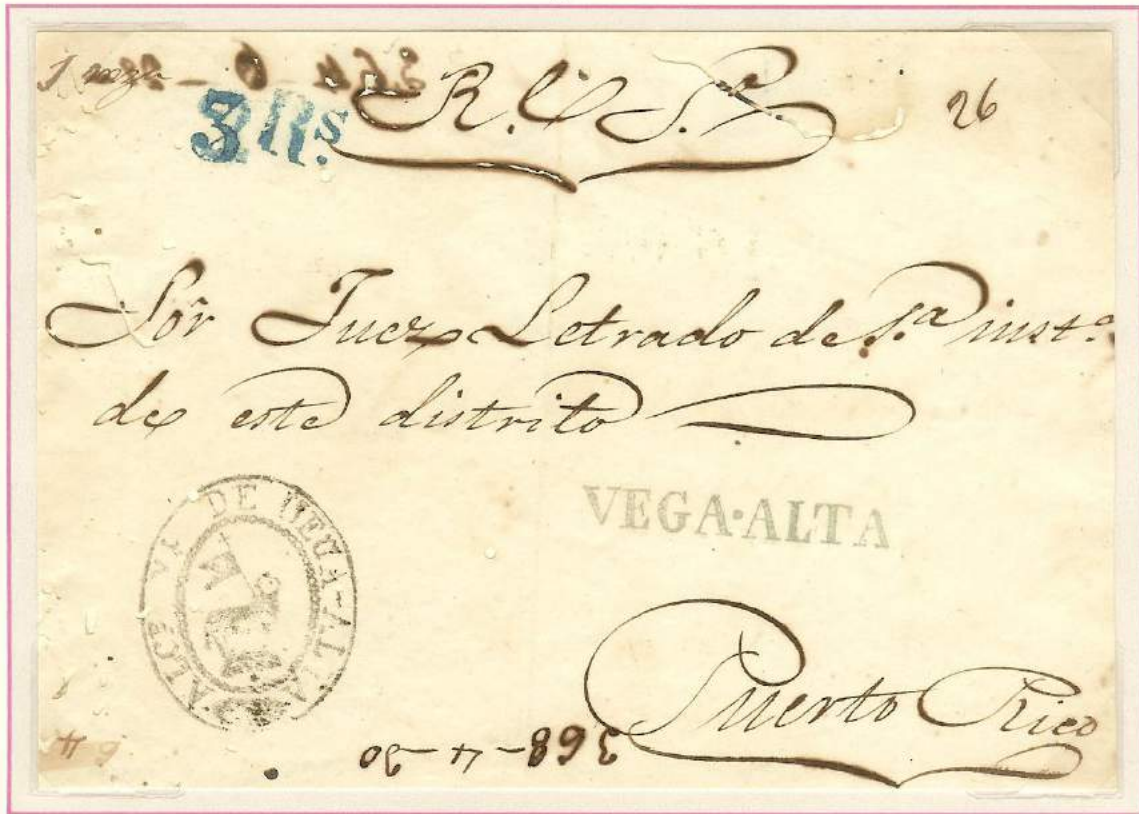 26
3 Rs.
R. l. S.r
Sor Juez Letrado de 1.a inst.a
de este distrito
VEGA·ALTA
DE VEGA-ALTA
Puerto Rico
368-4-30